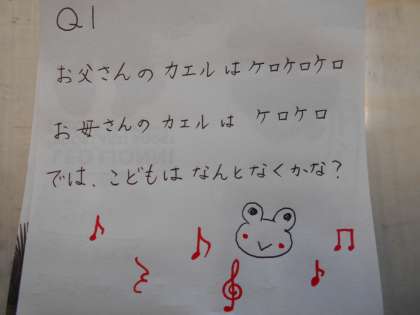 Q1
お父さんの カエル は ケロケロケロ
お母さんの カエル は ケロケロ
では、こどもは なんとなくかな?